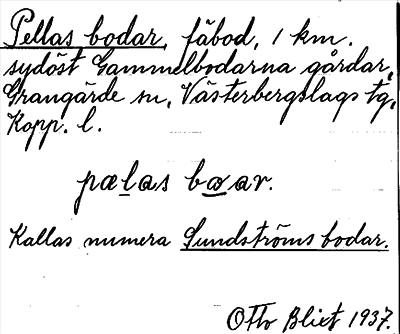 Pellas bodar, fäbod, 1 km.
sydöst Gammelbodarna gårdar,
Grangärde sn, Västerbergslags tg,
Kopp. l.
pælas boar.
Kallas numera Sundströms bodar.
Otto Blixt 1937.